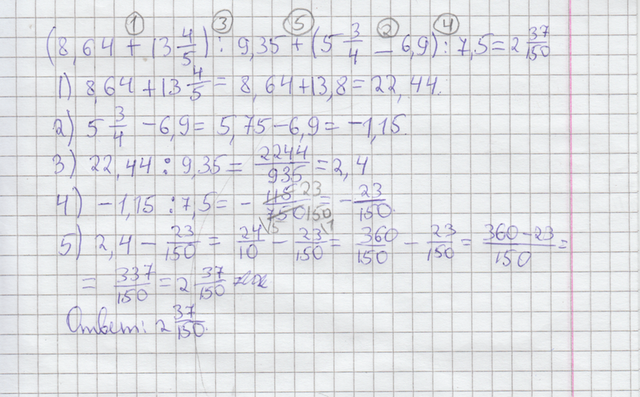 ① ③ ⑤ ② ④
(8,64 + 13 4/5) : 9,35 + (5 3/4 − 6,9) : 7,5 = 2 37/150
1) 8,64 + 13 4/5 = 8,64 + 13,8 = 22,44.
2) 5 3/4 − 6,9 = 5,75 − 6,9 = −1,15.
3) 22,44 : 9,35 = 2244/935 = 2,4
4) −1,15 : 7,5 = − 115 23/750 150 = − 23/150.
5) 2,4 − 23/150 = 24/10 \15 − 23/150 \1 = 360/150 − 23/150 = 360−23/150 =
= 337/150 = 2 37/150
Ответ: 2 37/150.